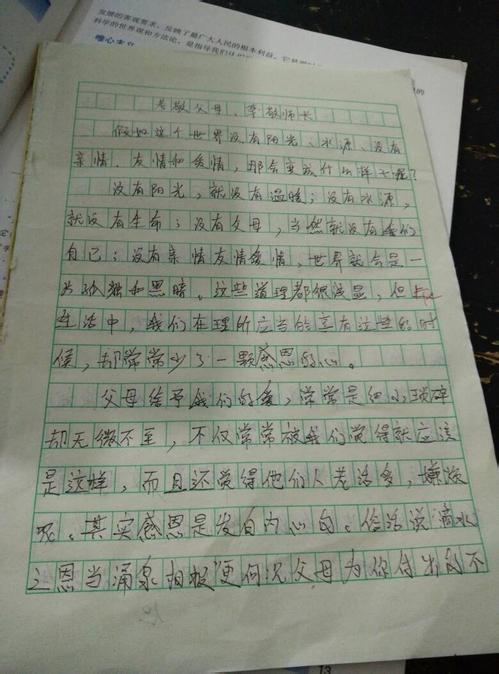 发展的客观要求，反映了最广大人民的根本利益，
科学的世界观和方法论，是指导我们
唯心主义
孝敬父母、尊敬师长
假如这个世界没有阳光、水源、没有
亲情、友情和爱情，那会变成什么样子呢?
没有阳光，就没有温暖；没有水源，
就没有生命；没有父母，当然就没有我们
自己；没有亲情友情爱情，世界就会是一
片孤独和黑暗。这些道理都很浅显，但
生活中，我们在理所应当的享有这些的时
候，却常常少了一颗感恩的心。
父母给予我们的爱，常常是细小琐碎
却无微不至，不仅常常被我们觉得就应该
是这样，而且还觉得他们人老话多，嫌烦
呢。其实感恩是发自内心的。俗话说"滴水
之恩当涌泉相报"更何况父母为你付出的不
13